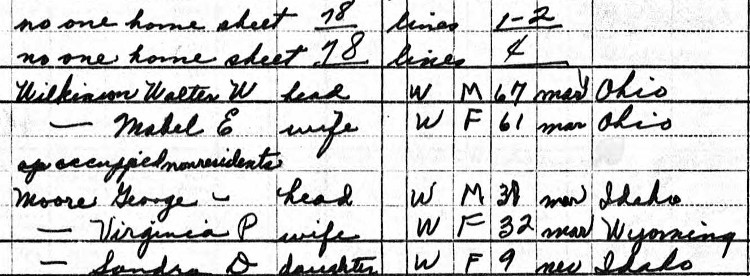 no one home sheet 78 lines 1-2
no one home sheet 78 lines 4
Wilkinson Walter W head W M 67 mar Ohio
— Mabel E wife W F 61 mar Ohio
occuppied nonresidents
Moore George — head W M 38 mar Idaho
— Virginia P wife W F 32 mar Wyoming
— Sandra D daughter W F 9 nev Idaho